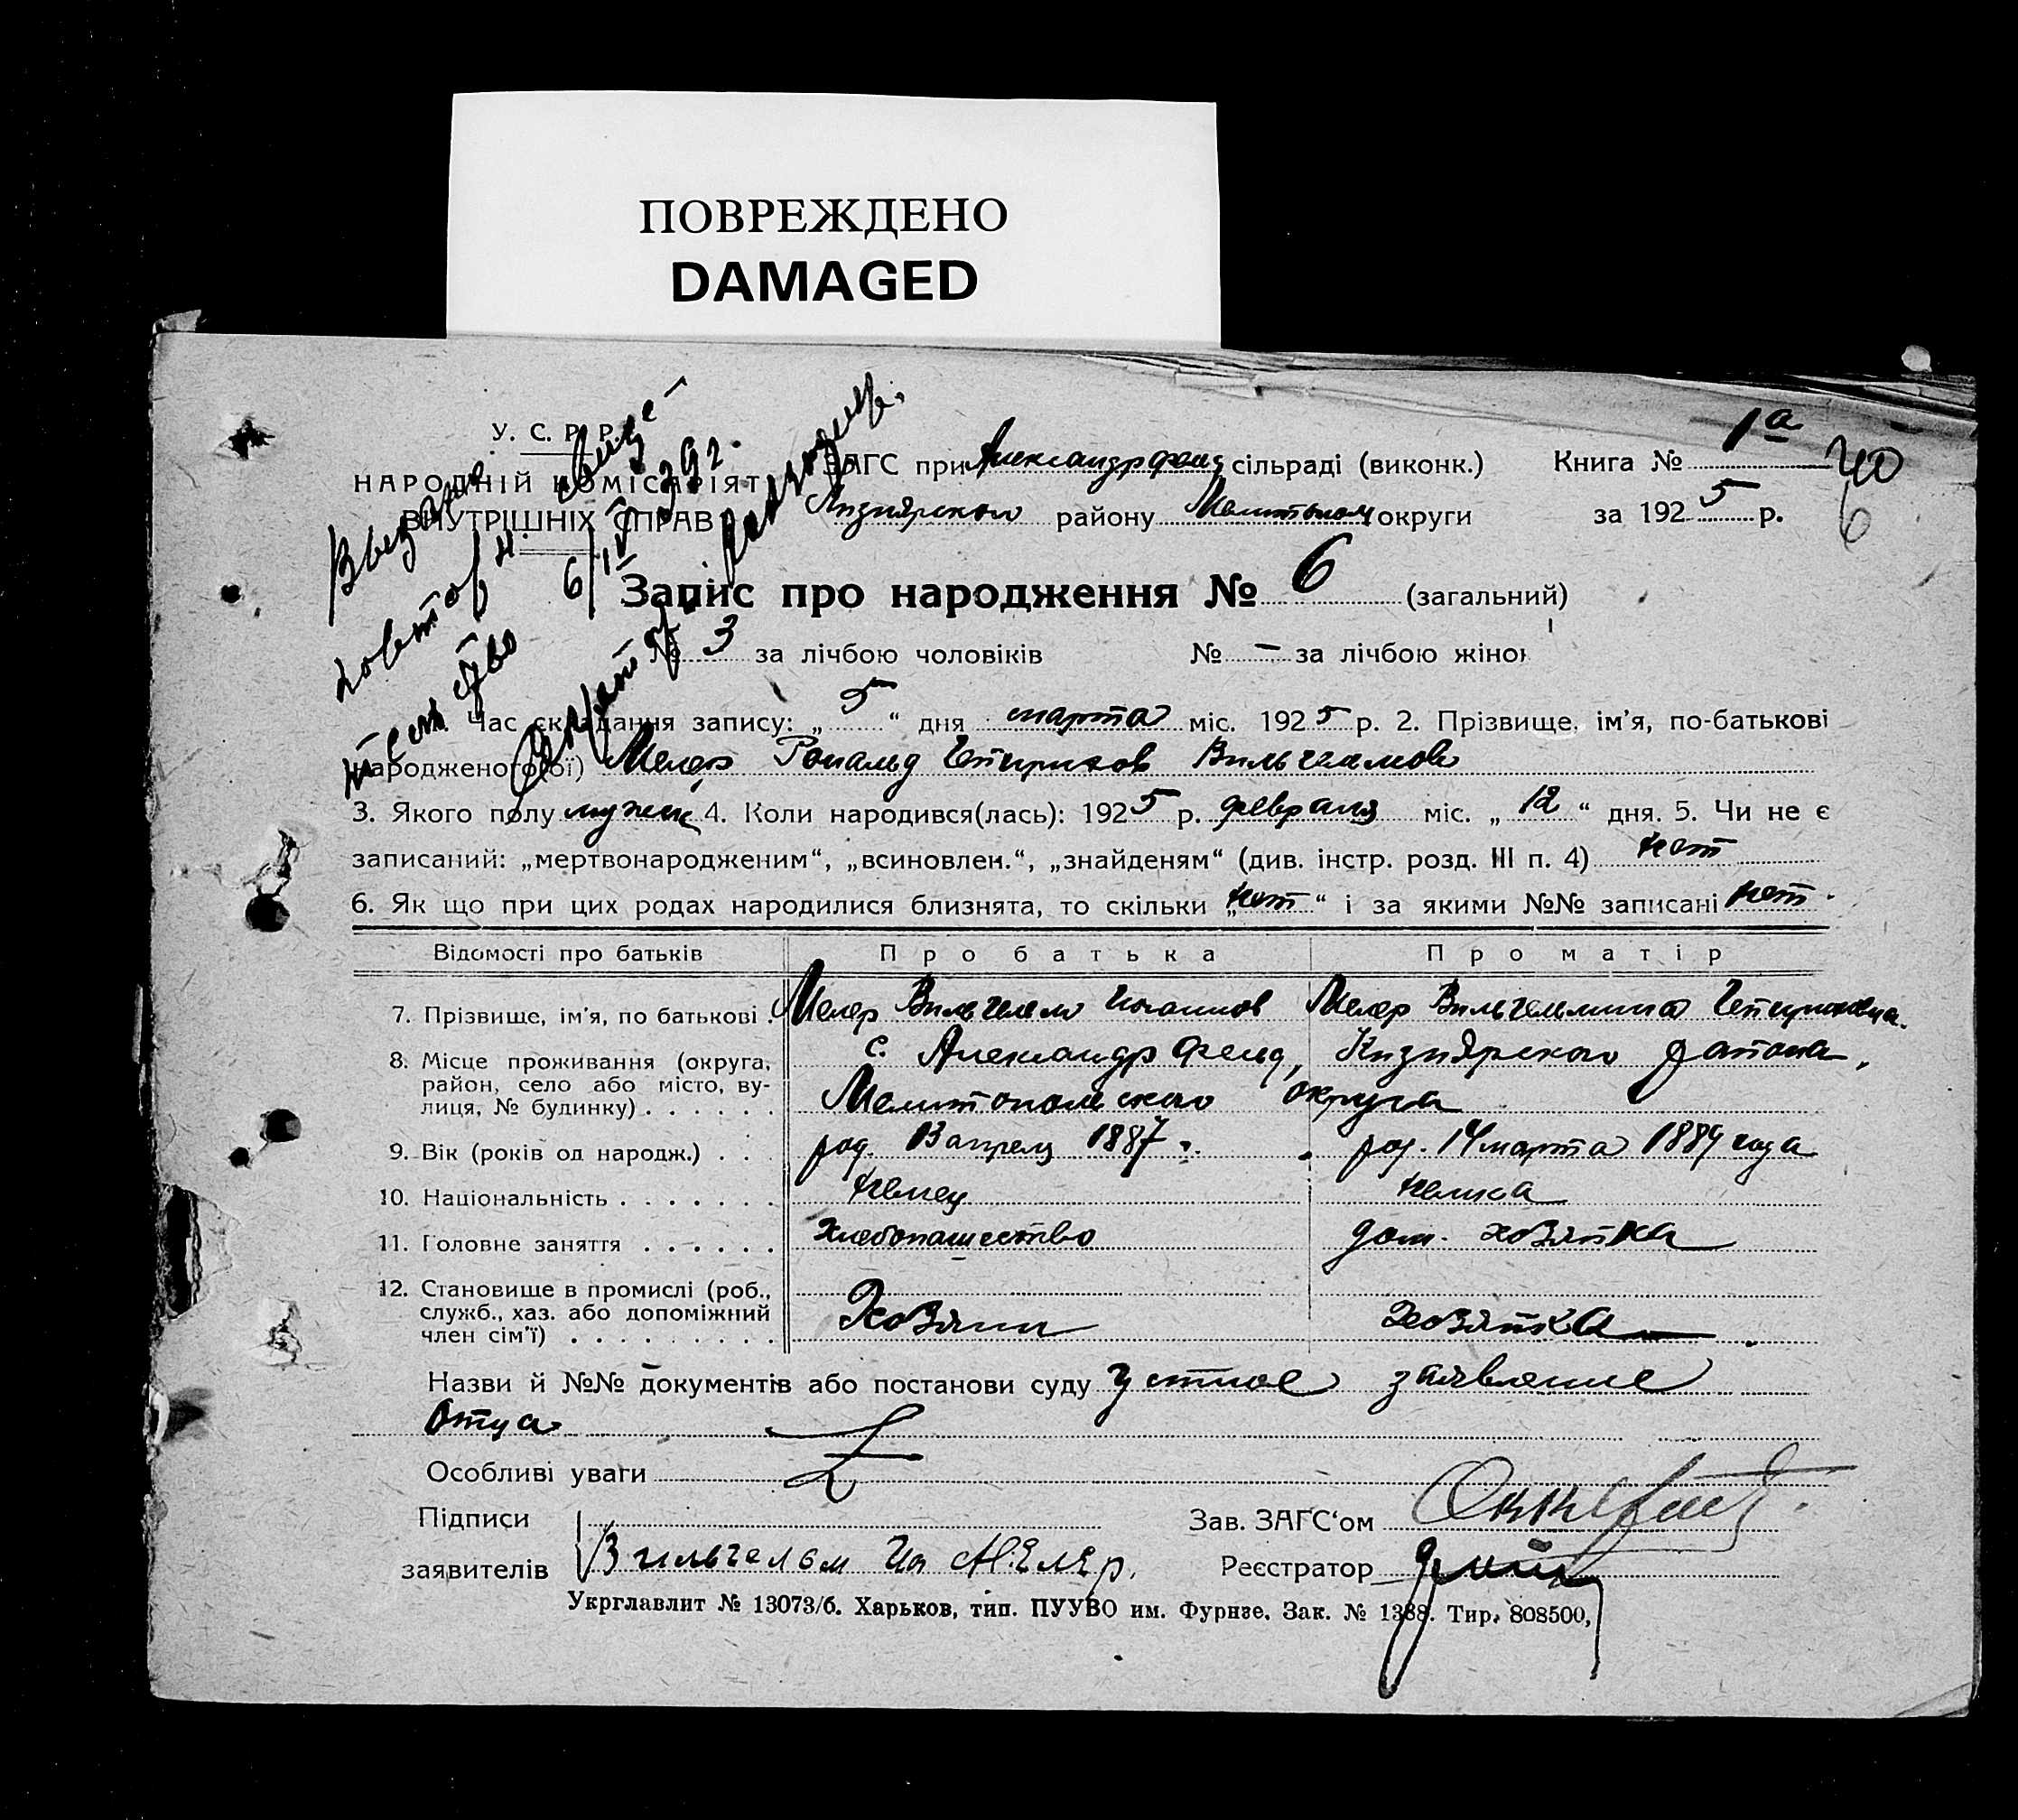 ПОВРЕЖДЕНО
DAMAGED
У. С. Р. Р.
НАРОДНІЙ КОМІСАРІЯТ
ВНУТРІШНІХ СПРАВ
Выдано
повторн. свиде-
тельство 6/IV 39 г.
ЗАГС при Александрфельд сільраді (виконк.) Книга № 1а
40
6
районy округи за 1925 р.
Запис про народження № 6 (загальний)
№ 3 за лічбою чоловіків № – за лічбою жінок
1. Час складання запису: „ 5 “ дня марта міс. 1925 р. 2. Прізвище, ім’я, по-батькові
народженого(ої) Мелер Рональд Вильгелмов
3. Якого полу мужск 4. Коли народився(лась): 1925 р. февраля міс. „ 12 “ дня. 5. Чи не є
записаний: „мертвонародженим“, „всиновлен.“, „знайденям“ (див. інстр. розд. III п. 4) нет
6. Як що при цих родах народилися близнята, то скільки „нет“ і за якими №№ записані нет.
Відомості про батьків Про батька Про матір
7. Прізвище, ім’я, по батькові . Мелер Вильгелм Иоганнов Мелер Вильгельмина
8. Місце проживання (округа, район, село або місто, ву- лиця, № будинку) . . . . . . с. Александрфельд, Кизиярского района,
Мелитопольского округа
9. Вік (років од народж.) . . . род. 13 апрель 1887 г. род. 14 марта 1889 года
10. Національність . . . . . . . немец немка
11. Головне заняття . . . . . . хлебопашество дом. хозяйка
12. Становище в промислі (роб., служб., хаз. або допоміжний член сім’ї) . . . . . . . . . Хозяин хозяйка
Назви й №№ документів або постанови суду устное заявление
отца
Особливі уваги
Підписи Зав. ЗАГС‘ом
заявителів Вильгелем Ив Мелер. Реєстратор
Укрглавлит № 13073/б. Харьков, тип. ПУУВО им. Фурнзе. Зак. № 1388. Тир. 808500,